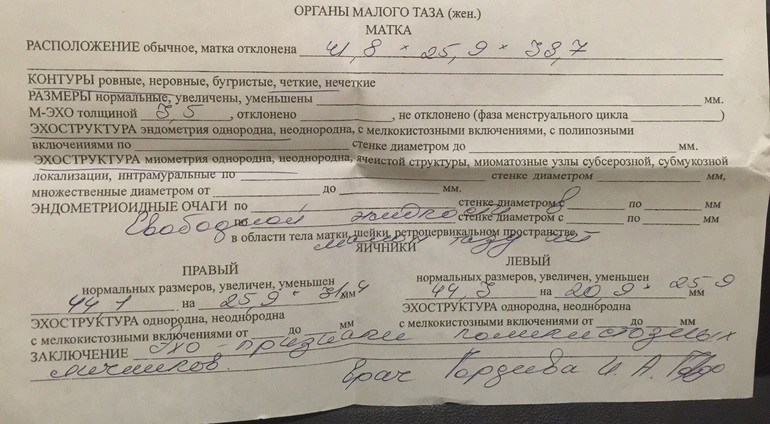 ОРГАНЫ МАЛОГО ТАЗА (жен.)
МАТКА
РАСПОЛОЖЕНИЕ обычное, матка отклонена 41,8 × 25,9 × 38,7
КОНТУРЫ ровные, неровные, бугристые, четкие, нечеткие
РАЗМЕРЫ нормальные, увеличены, уменьшены мм.
М-ЭХО толщиной 3,5, отклонено, не отклонено (фаза менструального цикла)
ЭХОСТРУКТУРА эндометрия однородна, неоднородна, с мелкокистозными включениями, с полипозными
включениями по стенке диаметром до мм.
ЭХОСТРУКТУРА миометрия однородна, неоднородна, ячеистой структуры, миоматозные узлы субсерозной, субмукозной
локализации, интрамуральные по стенке диаметром мм,
множественные диаметром от до мм.
ЭНДОМЕТРИОИДНЫЕ ОЧАГИ по стенке диаметром с по мм
по стенке диаметром с по мм
Свободной жидкости в
в области тела матки, шейки, ретроцервикальном пространстве
малом тазу нет
ЯИЧНИКИ
ПРАВЫЙ
нормальных размеров, увеличен, уменьшен
44 1 на 25,9 × 31,4 мм
ЭХОСТРУКТУРА однородна, неоднородна
с мелкокистозными включениями от до мм
ЛЕВЫЙ
нормальных размеров, увеличен, уменьшен
44,3 на 20,9 × 25 9 мм
ЭХОСТРУКТУРА однородна, неоднородна
с мелкокистозными включениями от до мм
ЗАКЛЮЧЕНИЕ Эхо-признаки поликистозных
яичников. Врач И. А.